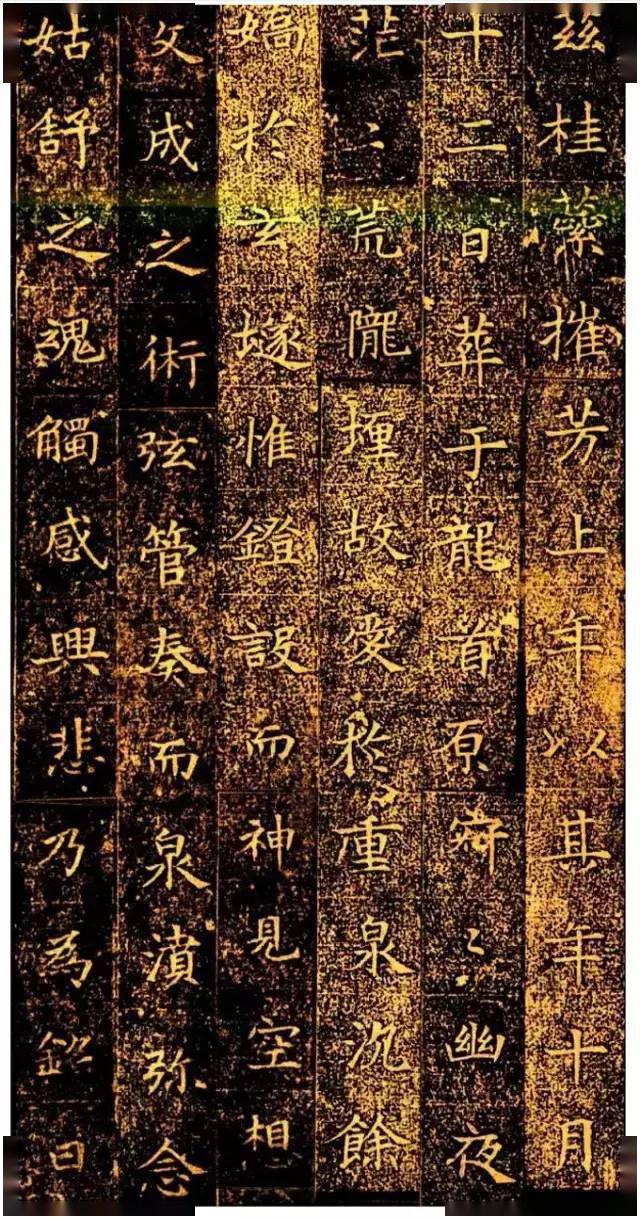 茲桂蘂摧芳上年以其年十月
十二日葬于龍首原寂〻幽夜
茫〻荒隴埋故愛於重泉沉餘
嬌於玄𡑞惟鐙設而神見空想
文成之術弦管奏而泉濆弥念
姑舒之魂觸感興悲乃為銘曰